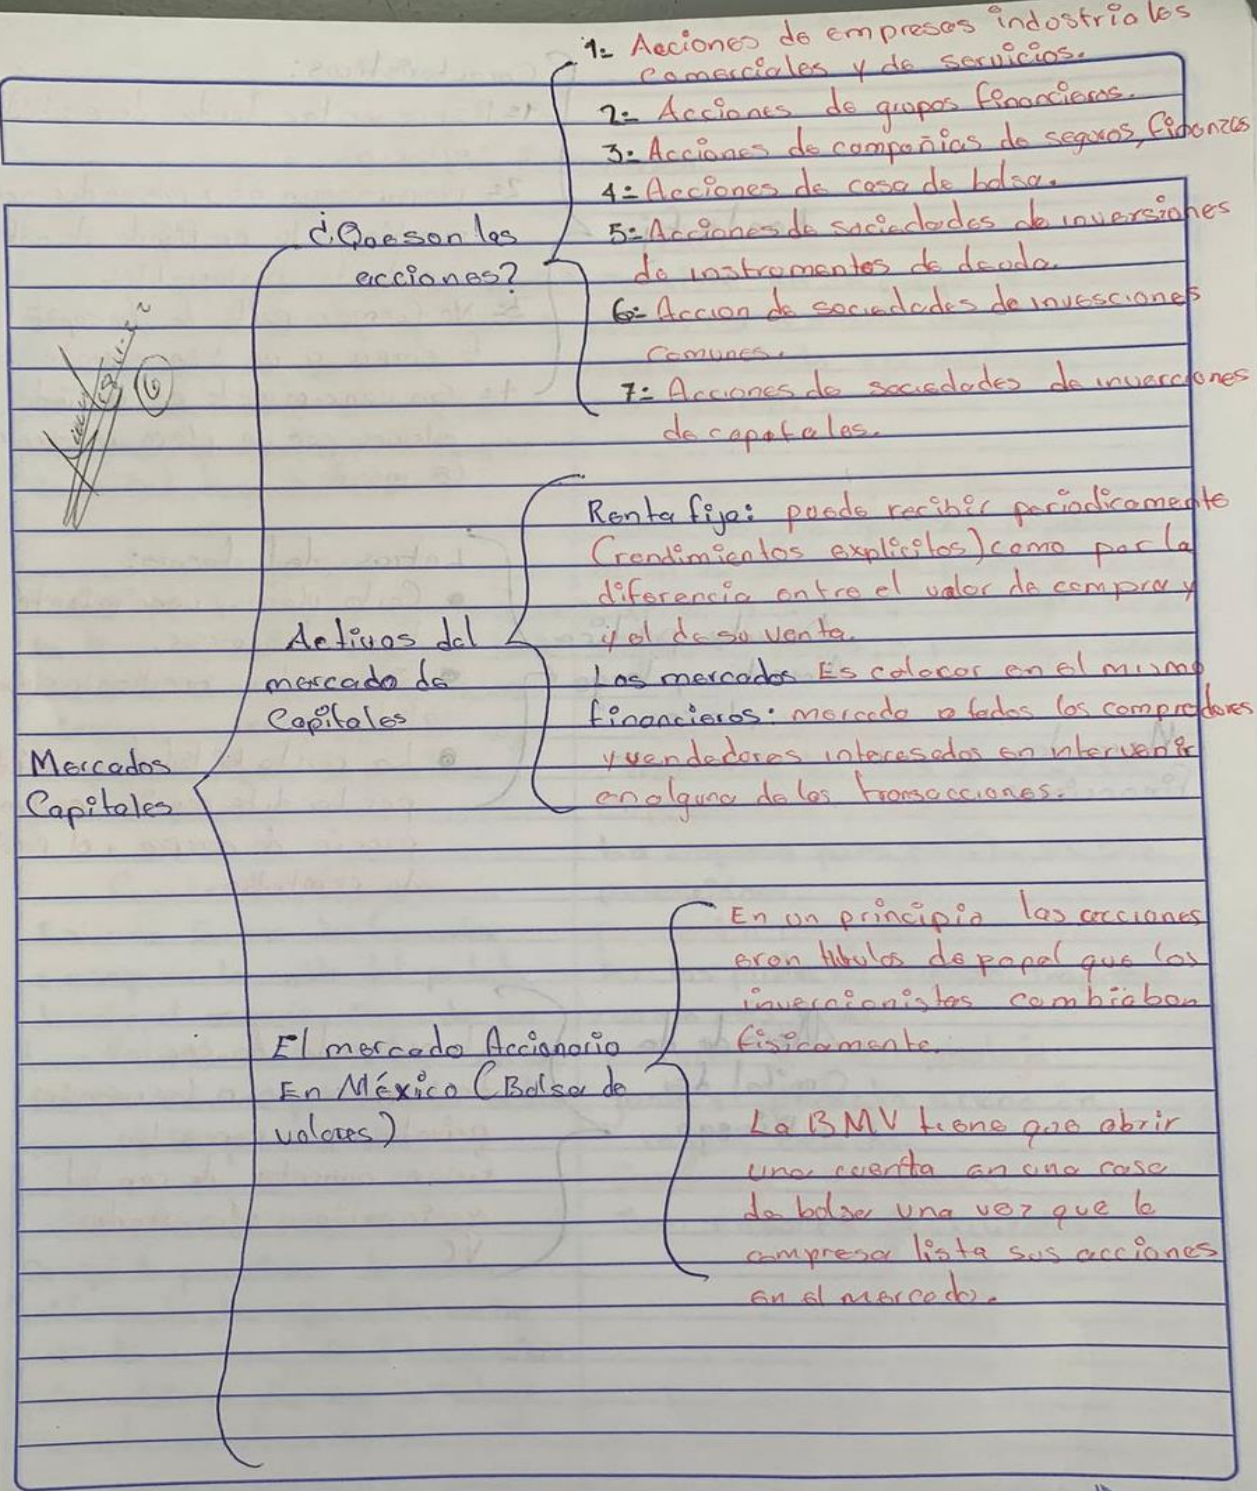 1- Acciones de empresas industriales
comerciales y de servicios.
2- Acciones de grupos financieros.
3- Acciones de compañias de seguros, finanzas
4- Acciones de casa de bolsa.
5- Acciones de sociedades de inversiones
de instromentos de deuda.
6- Accion de sociedades de inversciones
comunes.
7- Acciones de sociedades de inverciones
de capotales.
¿Que son las
acciones?
6
Renta fija: puede recibir periodicamente
(rendimientos explicitos) como por la
diferencia entre el valor de compra y
y el de su venta.
Los mercados Es colocar en el mismo
financieros: mercado a todos los compradores
y vendedores interesados en intervenir
en alguna de las transacciones.
Activos del
mercado de
Capitales
Mercados
Capitales
En un principio las acciones
eran titulos de papel que los
invercionistas cambiaban
fisicamente.
El mercado Accionario
En México (Bolsa de
valores)
La BMV tiene que abrir
una cuenta en una casa
de bolsa una vez que la
empresa lista sus acciones
en el mercado.